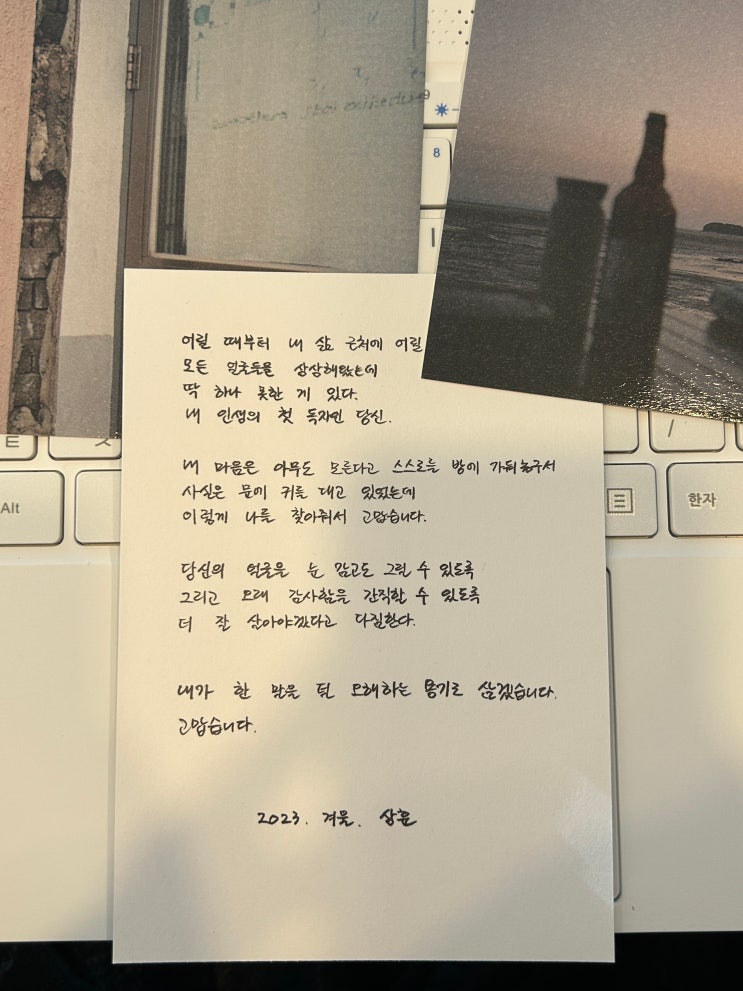 어릴 때부터 내 삶 근처에 어릴
모든 얼굴들을 상상해왔는데
딱 하나 못한 게 있다.
내 인생의 첫 독자인 당신.
내 마음은 아무도 모른다고 스스로를 방에 가둬놓구서
사실은 문에 귀를 대고 있었는데
이렇게 나를 찾아줘서 고맙습니다.
당신의 얼굴을 눈 감고도 그릴 수 있도록
그리고 오래 감사함을 간직할 수 있도록
더 잘 살아야겠다고 다짐한다.
내가 한 말을 덜 오해하는 용기로 삼겠습니다.
고맙습니다.
2023. 겨울. 상훈
9
8
Alt
ㅌ
ㅊ
/
한자